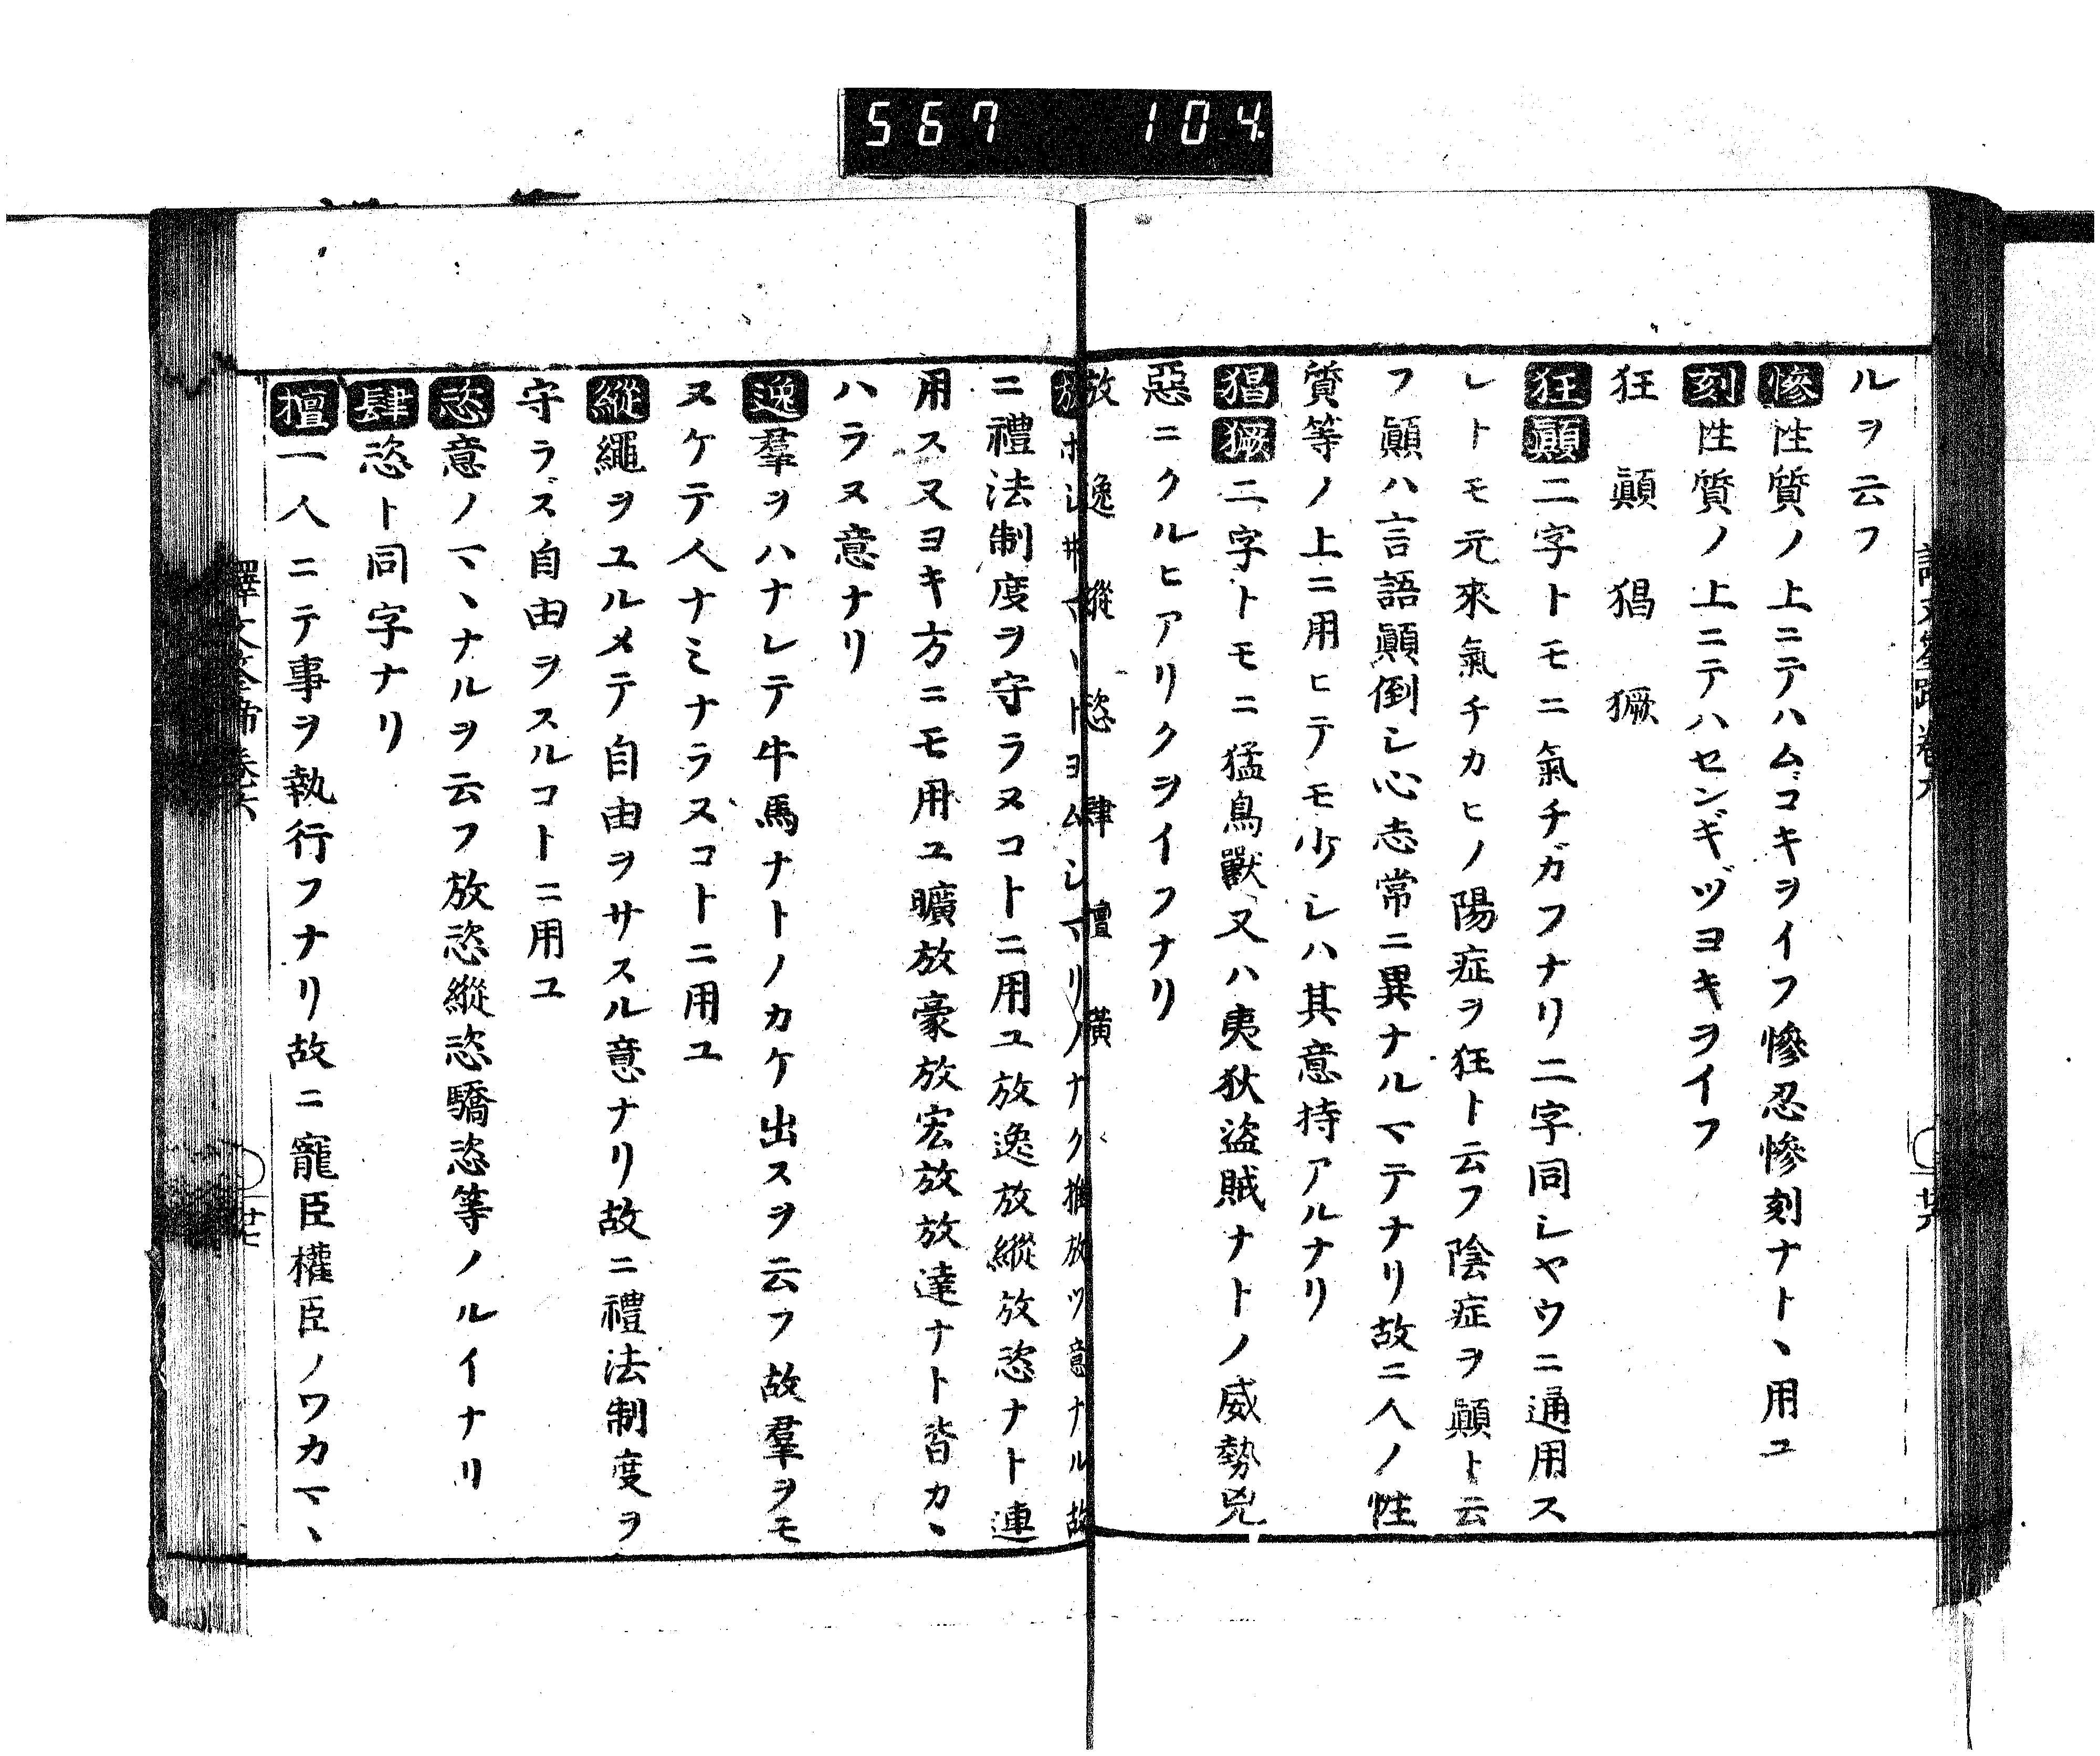 567 104
ルヲ云フ
慘性質ノ上ニテハムゴキヲイフ慘忍慘刻ナト、用ユ
刻性質ノ上ニテハセンギヅヨキヲイフ
狂 顚 猖 獗
狂顚二字トモニ氣チガフナリ二字同シヤウニ通用ス
レトモ元來氣チカヒノ陽症ヲ狂ト云フ陰症ヲ顚ト云
フ顚ハ言語顚倒シ心志常ニ異ナルマテナリ故ニ人ノ性
質等ノ上ニ用ヒテモ少シハ其意持アルナリ
猖獗二字トモニ猛鳥獸又ハ夷狄盜賊ナトノ威勢兇
惡ニクルヒアリクヲイフナリ
放 逸 縱 恣 肆 擅 橫
放ホシヰマヽトヨムシマリノナク推放ツ意ナル故
ニ禮法制度ヲ守ラヌコトニ用ユ放逸放縱放恣ナト連
用ス又ヨキ方ニモ用ユ曠放豪放宏放放達ナト皆カヽ
ハラヌ意ナリ
逸羣ヲハナレテ牛馬ナトノカケ出スヲ云フ故羣ヲモ
ヌケテ人ナミナラヌコトニ用ユ
縱繩ヲユルメテ自由ヲサスル意ナリ故ニ禮法制度ヲ
守ラズ自由ヲスルコトニ用ユ
恣意ノマヽナルヲ云フ放恣縱恣驕恣等ノルイナリ
肆恣ト同字ナリ
擅一人ニテ事ヲ執行フナリ故ニ寵臣權臣ノワカマヽ
譯文筌蹄卷六 廿七